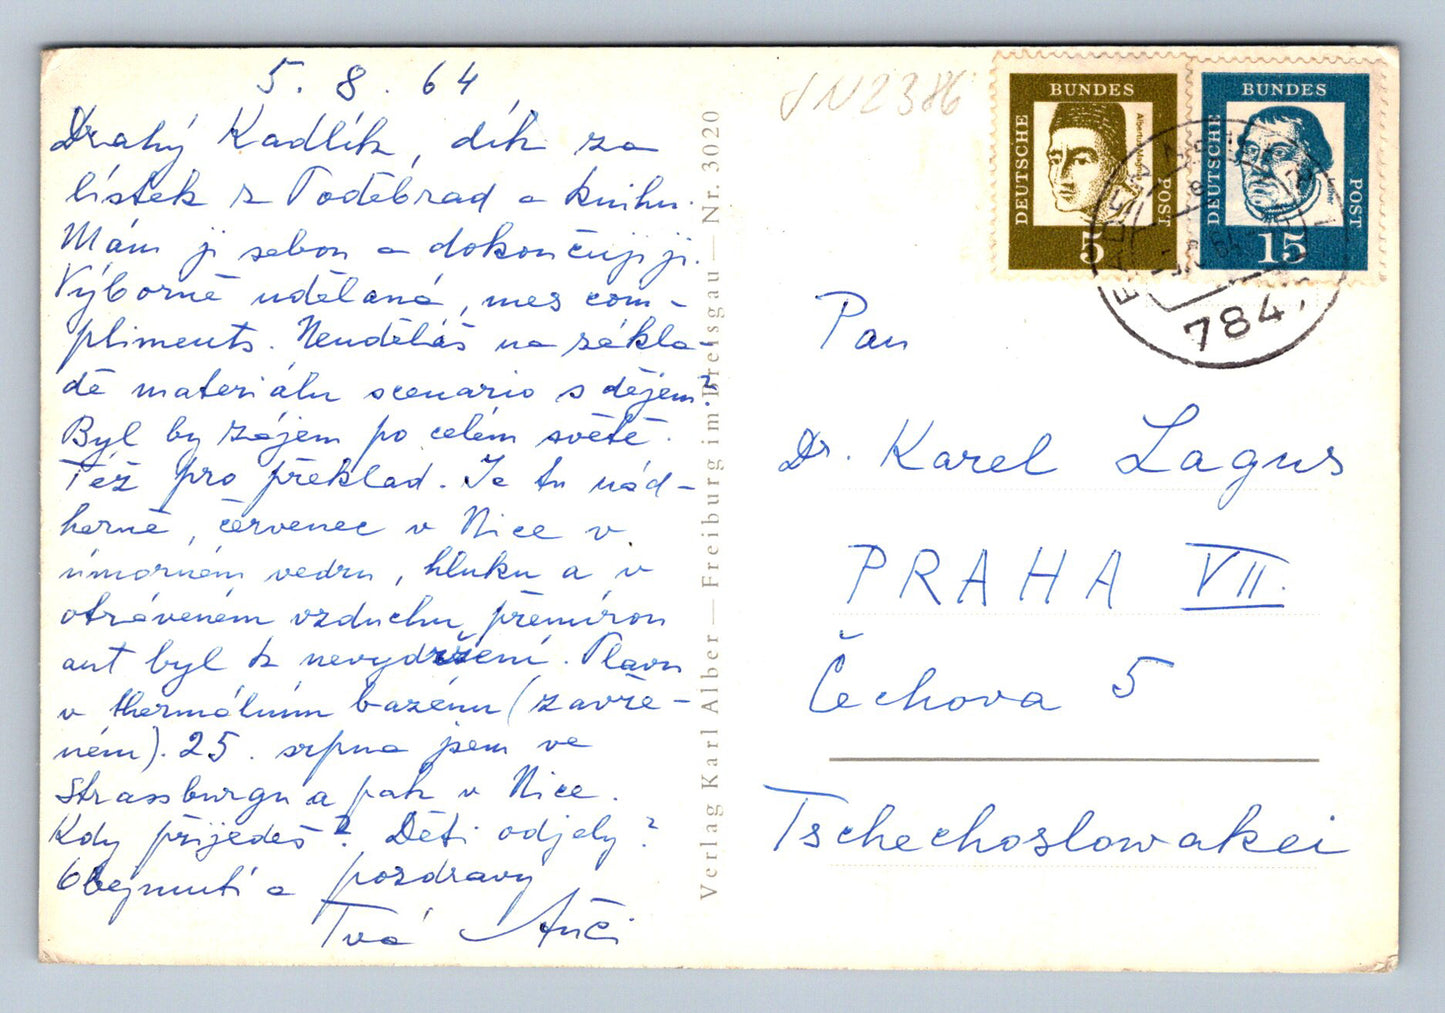 5. 8. 64
Drahý Kadlík, dík za
lístek z Poděbrad a knihu.
Mám ji sebou a dokončuji ji.
Výborně udělaná, mes com-
pliments. Neuděláš na zákla-
dě materiálu scenario s dějem?
Byl by zájem po celém světě.
Též pro překlad. Je tu nád-
herně, červenec v Nice v
úmorném vedru, hluku a v
otráveném vzduchu přemírou
aut byl k nevydržení. Plavu
v thermálním bazénu (zavře-
ném). 25. srpna jsem ve
Strassburgu a pak v Nice.
Kdy přijedeš? Děti odjely?
Obejmutí a pozdravy
Tvá Anči
Verlag Karl Alber — Freiburg im Breisgau — Nr. 3020
JN2386
DEUTSCHE BUNDES POST
5
DEUTSCHE BUNDES POST
15
784
Pan
Dr. Karel Lagus
PRAHA VII.
Čechova 5
Tschechoslowakei